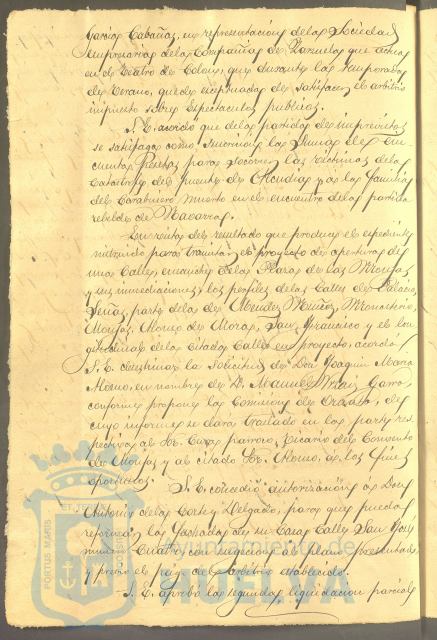 García Cabañas, en representación de la Sociedad
empresaria de la Compañía de Zarzuela que actua
en el Teatro de Colon, que durante la temporada
de verano, quede exceptuada de satisfacer el arbitrio
impuesto sobre espectaculos publicos.
S. E. acordó que de la partida de imprevistos
se satisfaga como suscricion la suma de cin-
cuenta Pesetas para socorrer las victimas de la
catastrofe del puente de Alcudia y a la familia
del Carabinero muerto en el encuentro de la partida
rebelde de Navarra.
En vista del resultado que produce el espediente
instruido para tramitar el proyecto de apertura de
una Calle, ensanche de la Plaza de las Monjas
y sus inmediaciones, los perfiles de las Calles del Palacio,
Señas, parte de la de Mendez Nuñez, Monasterio,
Monjas, Alonso de Mora, San Francisco y el lon-
gitudinal de la citada Calle en proyecto, acordó
S. E. desestimar la solicitud de Don Joaquin María
Alonso, en nombre de D. Manuel Garro,
conforme propone la Comision de Ornato, de
cuyo informe se dará traslado en la parte res-
pectiva al Sr. Cura parroco, Vicario del Convento
de Monjas y al citado Sr. Alonso, a los fines
oportunos.
S. E. concedió autorización a Don
Antonio de la Corte y Delgado, para que pueda
reformar la fachada de su Casa Calle San José
numero cuatro con sugecion al plano presentado
y previo el pago del arbitrio establecido.
S. E. aprobó la segunda liquidacion parcial
PORTUS MARIS
Ayuntamiento de
HUELVA